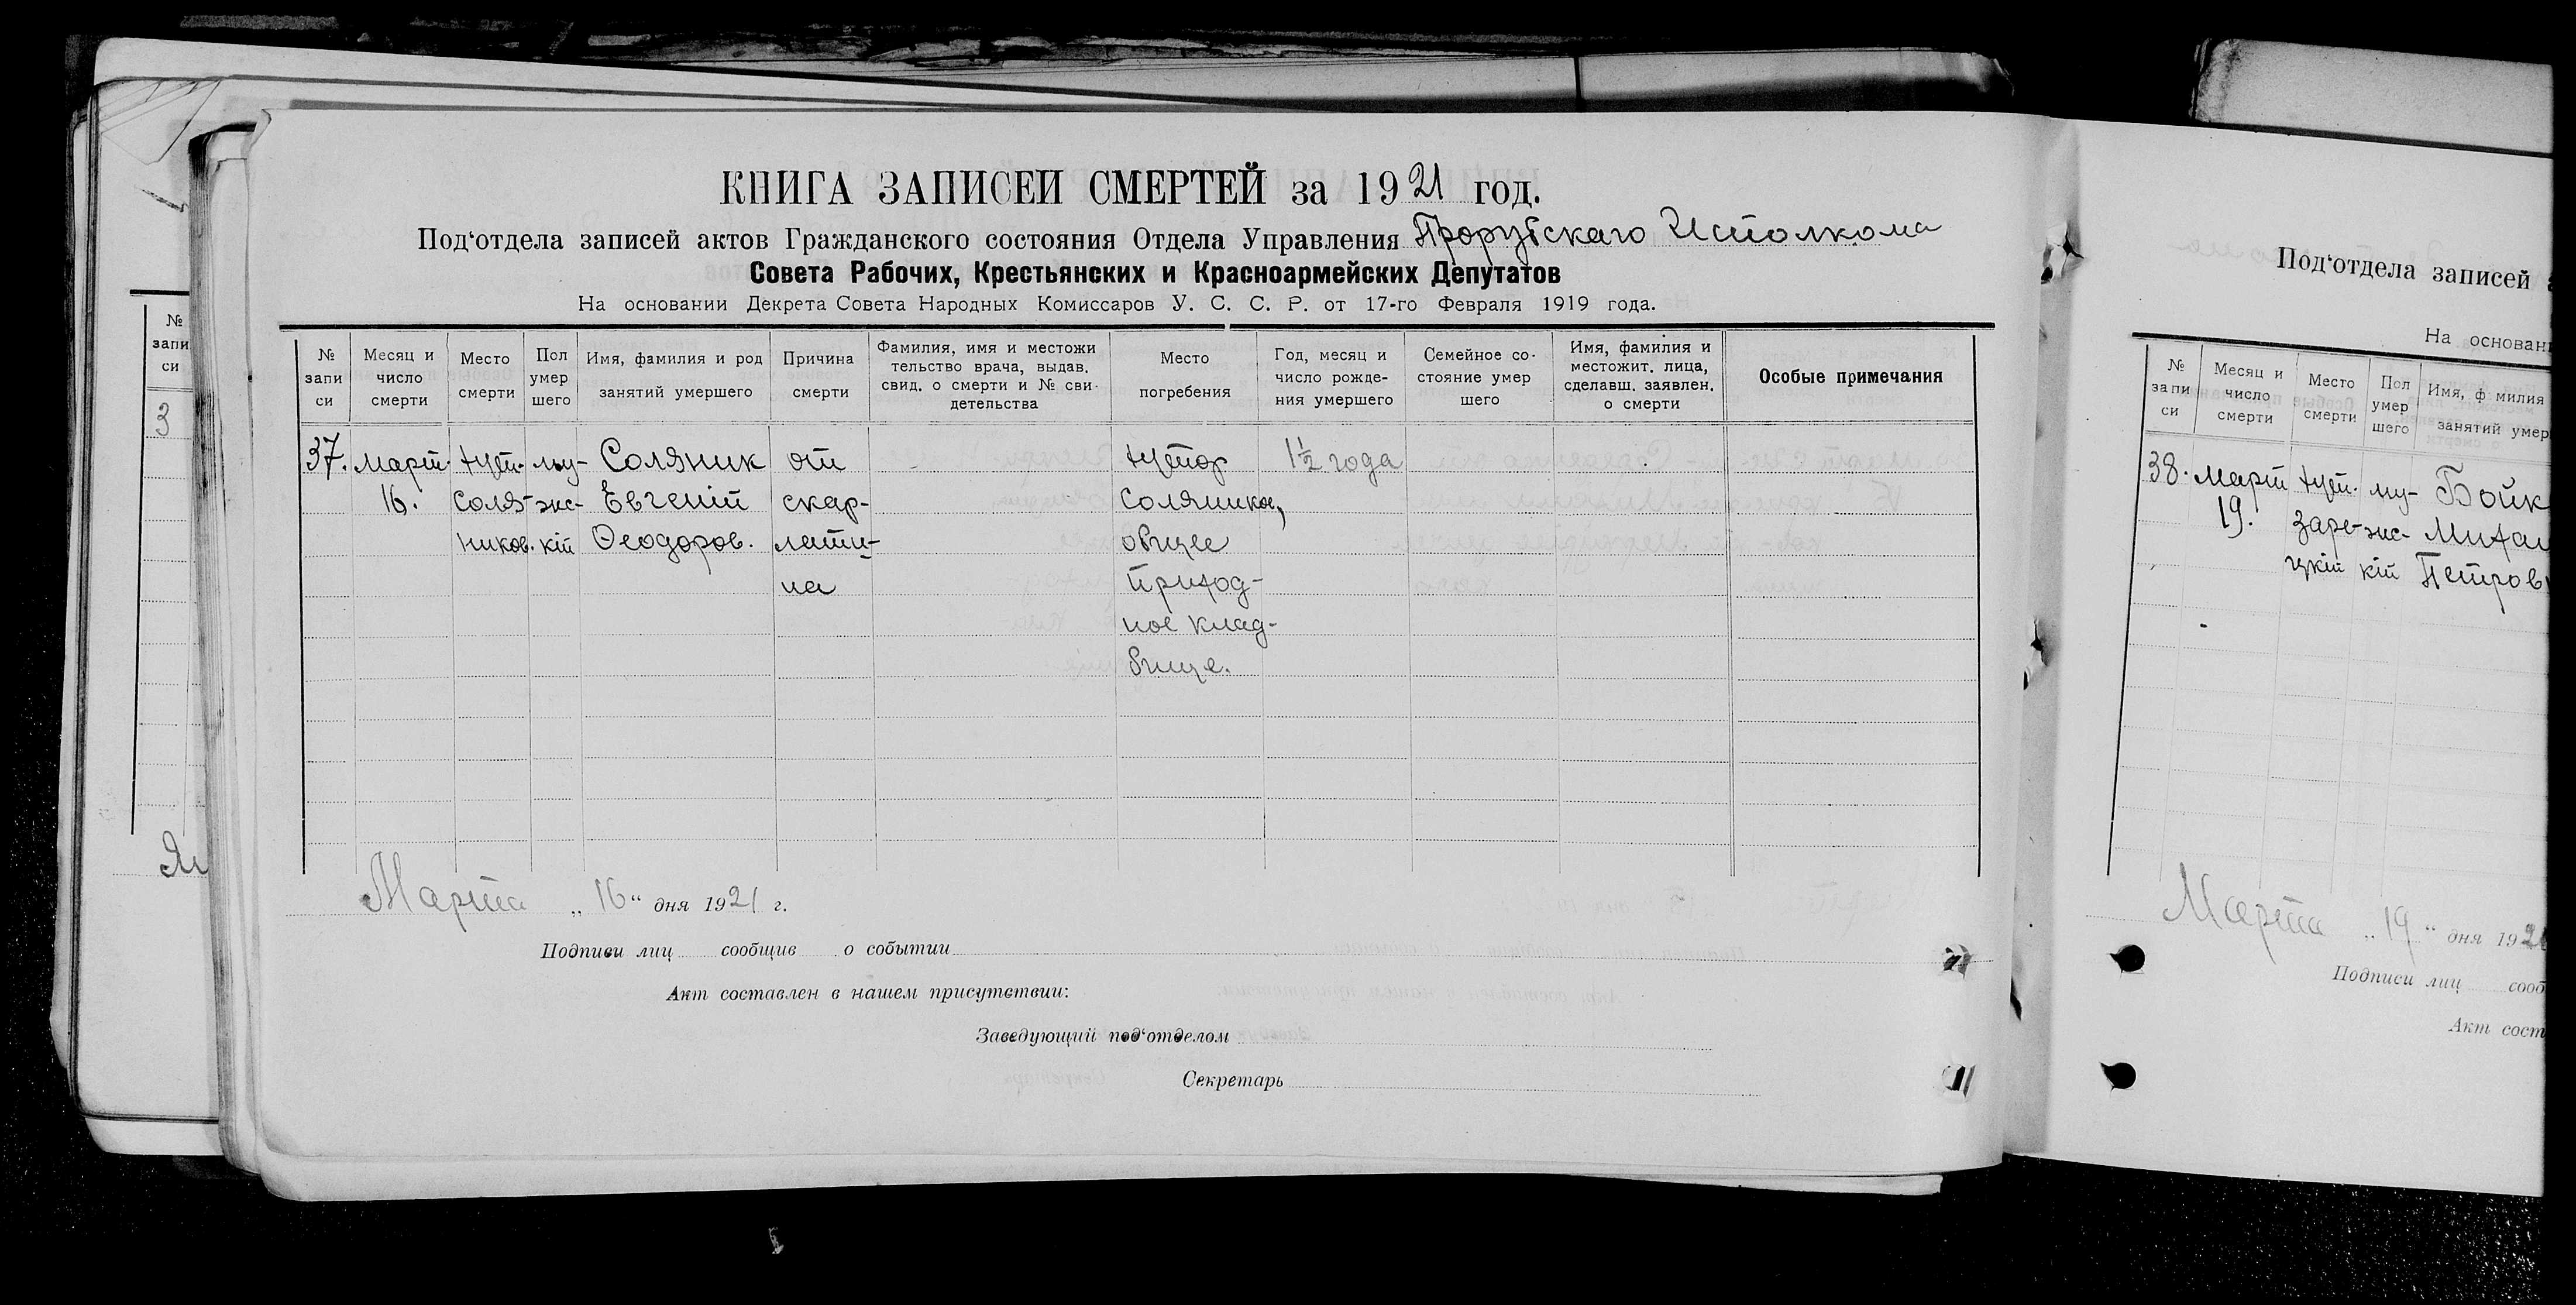 КНИГА ЗАПИСЕЙ СМЕРТЕЙ за 1921 год.
Под‘отдела записей актов Гражданского состояния Отдела Управления Прорубскаго Исполкома
Совета Рабочих, Крестьянских и Красноармейских Депутатов
На основании Декрета Совета Народных Комиссаров У. С. С. Р. от 17-го Февраля 1919 года.
№ запи си
Месяц и число смерти
Место смерти
Пол умер шего
Имя, фамилия и род занятий умершего
Причина смерти
Фамилия, имя и местожи тельство врача, выдав. свид. о смерти и № сви- детельства
Место погребения
Год, месяц и число рожде- ния умершего
Семейное со- стояние умер шего
Имя, фамилия и местожит. лица, сделавш. заявлен. о смерти
Особые примечания
37. март. хут. му- Соляник от хутор 1½ года
16. Соля- жс- Евгеній скар- Соляников,
ников. кій Ѳеодоров. лати- общее
на приход-
ное клад-
бище.
Марта „16“ дня 1921 г.
Подписи лиц сообщив о событии
Акт составлен в нашем присутствии:
Заведующий под‘отделом
Секретарь
№ запи си
3
Под‘отдела записей
На основан
№ запи си
Месяц и число смерти
Место смерти
Пол умер шего
Имя, ф милия занятий умер
38. март хут. му- Бойк
19. заре- жс- Михаи
цкій кій Петров
Марта „19“ дня 192
Подписи лиц сооб
Акт сост